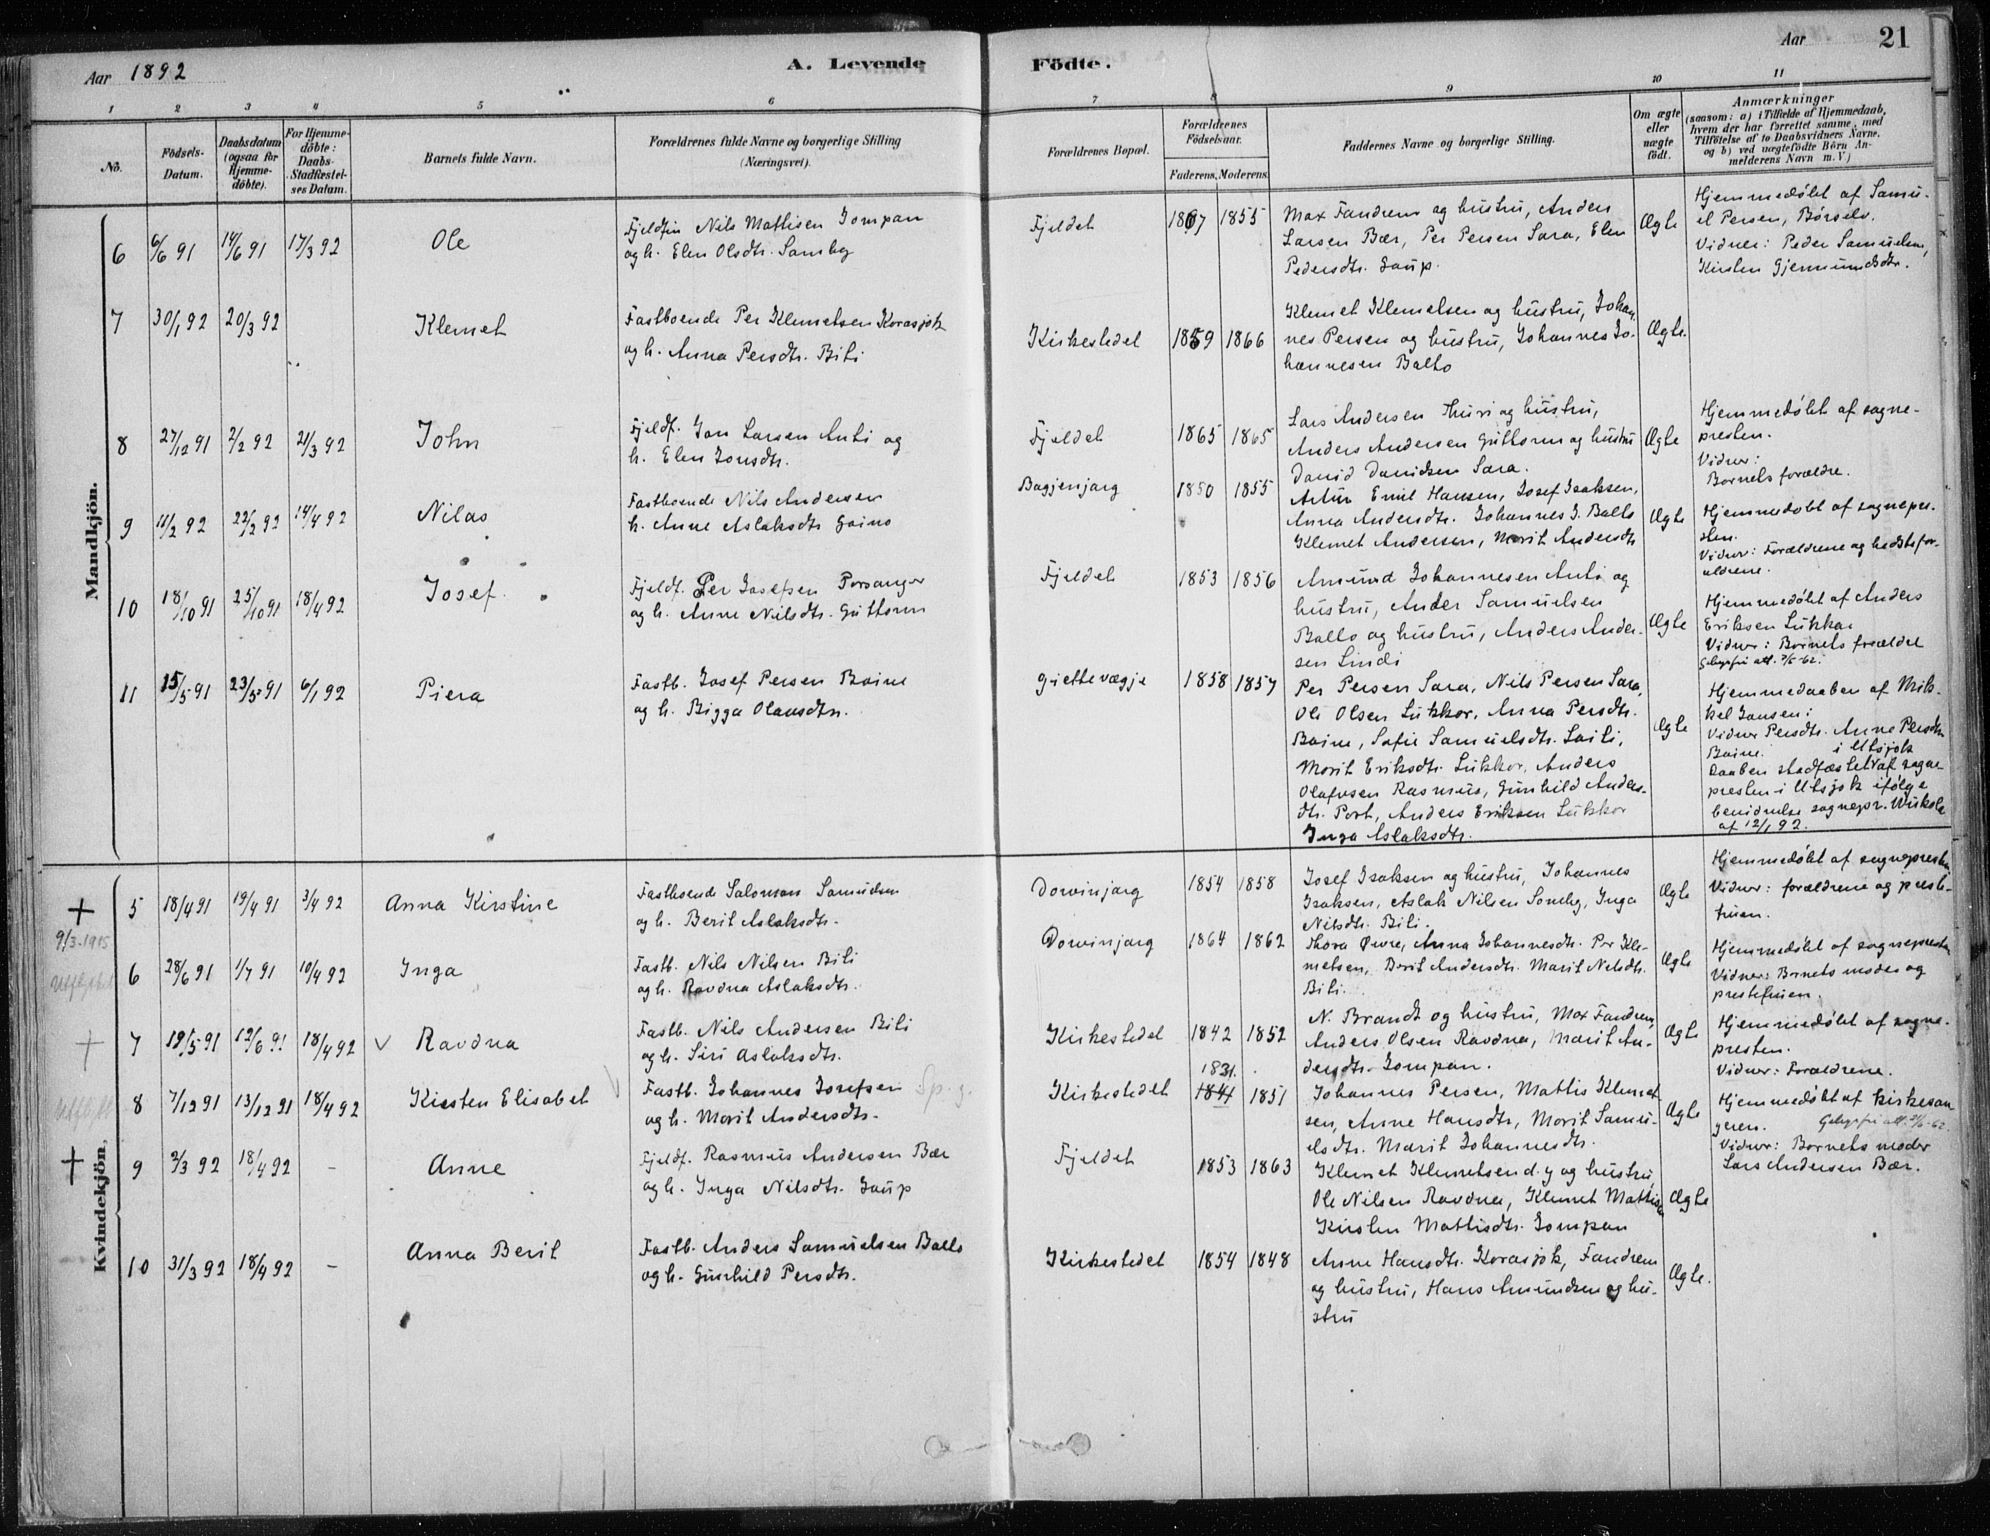 Aar 1892
A. Levende Födte.
Aar 21
1 2 3 4 5 6 7 8 9 10 11
No.
Födsels-Datum.
Daabsdatum (ogsaa for Hjemme-döbte).
For Hjemme-döbte: Daabs-Stadfæstel-ses Datum.
Barnets fulde Navn.
Forældrenes fulde Navne og borgerlige Stilling (Næringsvei).
Forældrenes Bopæl.
Forældrenes Födselsaar.
Faderens. Moderens.
Faddernes Navne og borgerlige Stilling.
Om ægte eller uægte födt.
Anmærkninger (saasom: a) i Tilfælde af Hjemmedaab, hvem der har forrettet samme, med Tilföielse af to Daabsvidners Navne, og b) ved uægtefödte Börn An-melderens Navn m. V.)
Mandkjön.
6 6/6 91 14/6 91 17/3 92 Ole
Fjeldfin Nils Mattisen Jompan
og h. Elen Olsdtr. Somby
Fjeldet 1867 1855
Max Fandrem og hustru, Anders
Larsen Bær, Per Persen Sara, Elen
Pedersdtr. Gaup.
Ægte
Hjemmedøbt af Samu-
el Persen, Børselv.
Vidner: Peder Samuelsen,
Kirsten Gjermundsdtr.
7 30/1 92 20/3 92 Klemet
Fastboende Per Klemetsen Korasjok
og h. Anna Persdtr. Biti
Kirkestedet 1859 1866
Klemet Klemetsen og hustru, Johan-
nes Persen og hustru, Johannes Jo-
hannesen Balto
Ægte.
8 27/12 91 2/2 92 21/3 92 John
Fjeldf. Jon Larsen Anti og
h. Elen Jonsdtr.
Fjeldet 1865 1865
Lars Andersen Thuri og hustru,
Anders Andersen Guttorm og hustru
David Davidsen Sara.
Ægte
Hjemmedøbt af sogne-
presten.
Vidner:
Barnets forældre.
9 11/2 92 22/2 92 14/4 92 Nilas
Fastboende Nils Andersen
h. Anne Aslaksdtr Gaino
Bagjenjarg 1850 1855
Artur Emil Hansen, Josef Isaksen,
Anna Andersdtr. Johannes J. Balto
Klemet Andersen, Marit Andersdtr
Ægte
Hjemmedøbt af sognepre-
sten.
Vidner: Forældrene og bedstefor-
ældrene.
10 18/10 91 25/10 91 18/4 92 Josef.
Fjeldf. Per Josefsen Porsanger
og h. Anne Nilsdtr. Guttorm
Fjeldet 1853 1856
Amund Johannesen Anti og
hustru, Ander Samuelsen
Balto og hustru, Anders Ander-
sen Lindi
Ægte
Hjemmedøbt af Anders
Eriksen Lukkar
Vidner: Barnets forældre
11 15/5 91 23/5 91 6/1 92 Piera
Fastb. Josef Persen Boine
og h. Bigga Olausdtr.
Giettevægje 1858 1857
Per Persen Sara, Nils Persen Sara,
Ole Olsen Lukkor, Anna Persdtr.
Boine, Sofie Samuelsdtr. Laiti,
Marit Eriksdtr. Lukkor, Anders
Olafvsen Rasmus, Gunhild Anders-
dtr. Port, Anders Eriksen Lukkor
Inga Aslaksdtr.
Ægte
Hjemmedaaben af Mik-
kel Jansen:
Vidner Persdtr. Anne Persdtr
Boine. i Utsjok
Daaben stadfæstet af sogne-
presten i Utsjok ifølge
bevidnelse sognepr.
af 12/1 92.
Kvindekjön.
+ 5 18/4 91 19/4 91 3/4 92 Anna Kirstine
9/3-1915
Fastboende Salomon Samuelsen
og h. Berit Aslaksdtr.
Dorvinjarg 1854 1858
Josef Isaksen og hustru, Johannes
Isaksen, Aslak Nilsen Somby, Inga
Nilsdtr. Biti.
Ægte
Hjemmedøbt af sognepresten
Vidner: forældrene og preste-
fruen.
6 28/6 91 1/7 91 10/4 92 Inga
Fastb. Nils Nilsen Biti
og h. Ravdna Aslaksdtr.
Dorvinjarg 1864 1862
Thora Øvre, Anna Johannesdtr. Per Kle-
metsen, Berit Andersdtr. Marit Nilsdtr.
Biti.
Ægte
Hjemmedøbt af sognepresten
Vidner: Barnets moder og
prestefruen.
+ 7 19/5 91 12/6 91 18/4 92 V Ravdna
Fastb. Nils Andersen Biti
og h. Siri Aslaksdtr.
Kirkestedet 1842 1852
N. Brandt og hustru, Max Fandrem,
Anders Olsen Ravdna, Marit An-
dersdtr. Jompan.
Ægte
Hjemmedøbt af sogne-
presten.
Vidner: Forældrene.
8 7/12 91 13/12 91 18/4 92 Kirsten Elisabet V
Fastb. Johannes Josefsen
og h. Marit Andersdtr.
Kirkestedet 1831. 1841 1851
Johannes Persen, Mattis Klemet
sen, Anne Hansdtr, Marit Samu-
elsdtr. Marit Johannesdtr.
Ægte
Hjemmedøbt af kirkesan
geren.
Vidner: Barnets moder
Lars Andersen Bær.
+ 9 2/3 92 18/4 92 - Anne
Fjeldf. Rasmus Andersen Bær
og h. Inga Nilsdtr. Gaup
Fjeldet 1853 1863
Klemet Klemetsen d.y og hustru,
Ole Nilsen Ravdna, Klemet Mattisen
Kirsten Mattisdtr. Jompan
Ægte
10 31/3 92 18/4 92 - Anna Berit
Fastb. Anders Samuelsen Balto
og h. Gunhild Persdtr.
Kirkestedet 1854 1848
Anne Hansdtr. Korasjok, Fandrem
og hustru, Hans Amundsen og hu-
stru
Ægte.